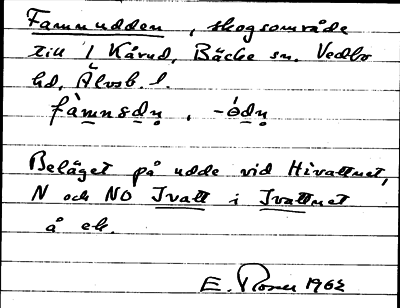 Famnudden, skogsområde
till 1 Kårud, Bäcke sn. Vedbo
hd, Älvsb. l.
fàmnsdn, -ódn
Beläget på udde vid Hivattnet,
N och NO Ivatt i Ivattnet
å ek.
E. Rosell 1962